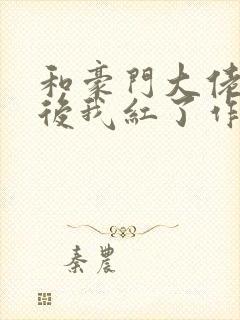 和豪門大佬
後我紅了作
秦農